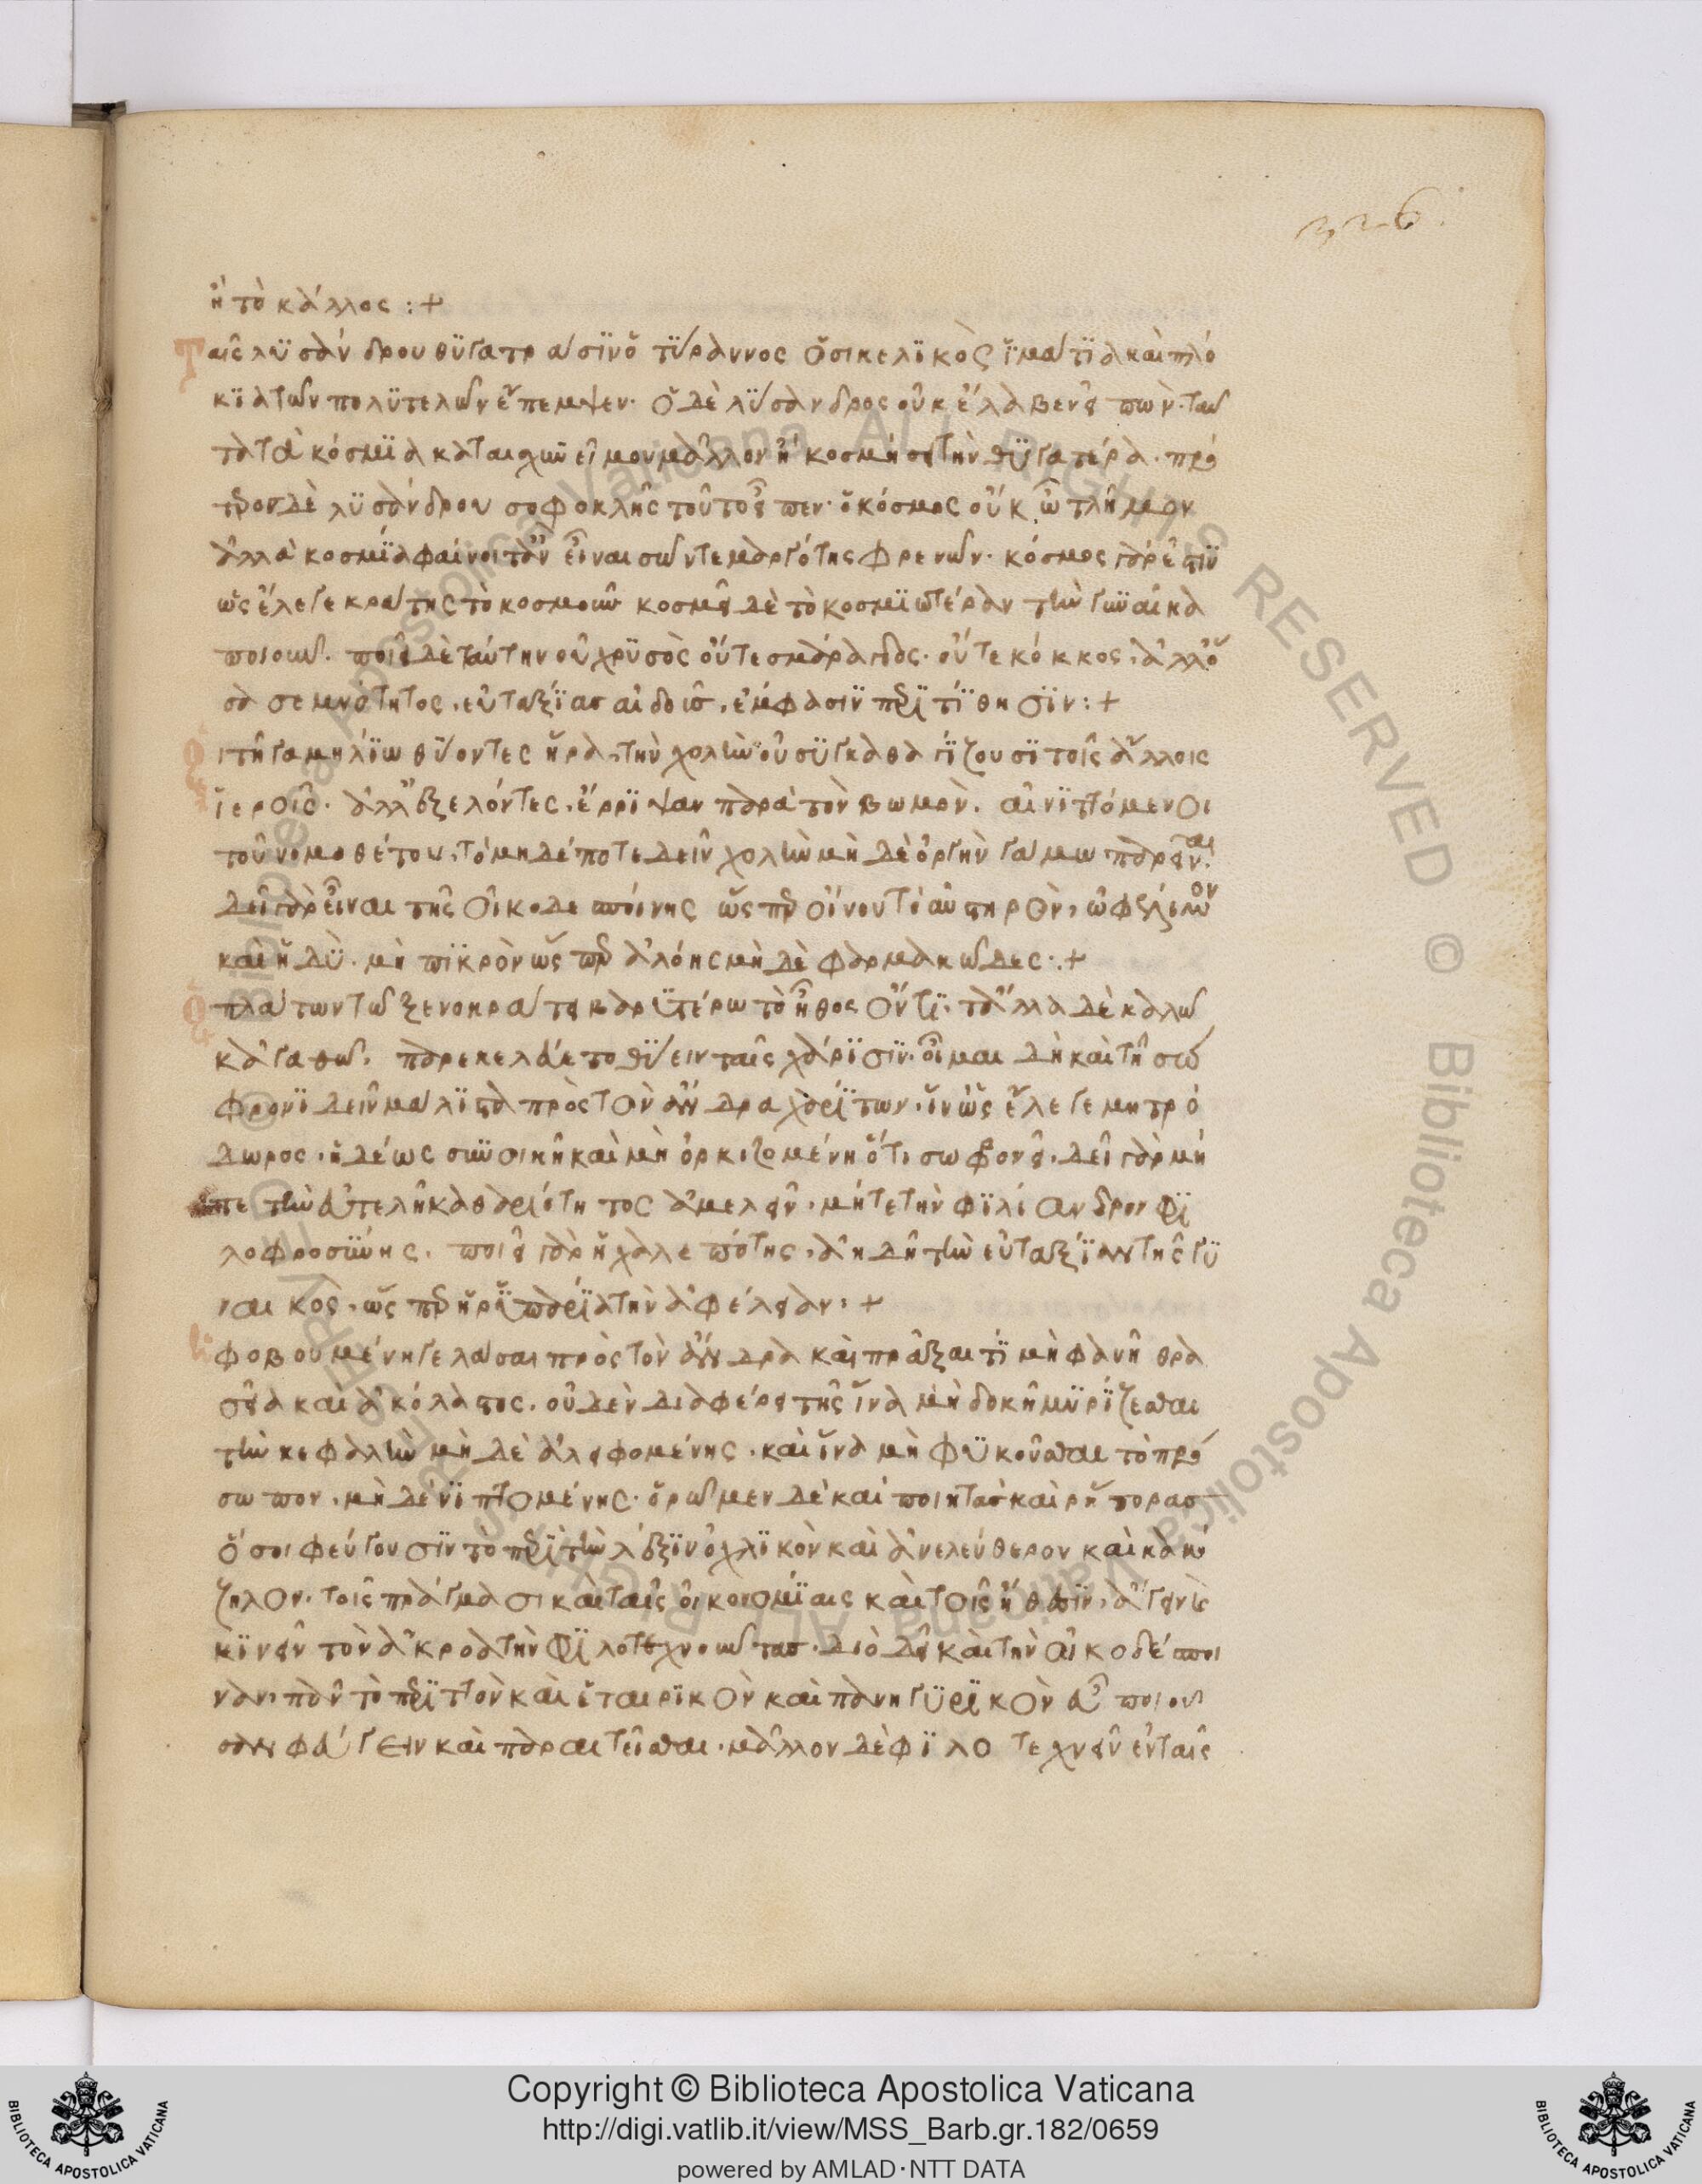 326.
ἢ τὸ κάλλος :+
Ταῖς λϋσάνδρου θϋγατράσϊν ὁ τΰραννος ὁ σικελϊκὸς ἱμάτϊα καὶ πλό
κϊα τῶν πολϋτελῶν ἔπεμψεν· ὁ δὲ λΰσανδρος οὐκ ἔλαβεν εἰπών· ταῦ
τα τὰ κόσμϊα καταισχυνεῖ μου μᾶλλον ἢ κοσμήσει τὴν θϋγατέρα· πρό
τερον δὲ λϋσάνδρου σοφοκλῆς τοῦτο εἶπεν· ὁ κόσμος οὔκ, ὦ τλῆμον
ἀλλ' ἀκοσμΐα φαίνοιτ' ἂν εἶναι σῶν τε μαργότης φρενῶν· κόσμος γάρ ἐστϊν
ὡς ἔλεγε κράτης τὸ κοσμοῦν κοσμεῖ δὲ τὸ κοσμϊωτέραν τὴν γϋναῖκα
ποιοῦν. ποιεῖ δὲ ταύτην οὐ χρϋσὸς οὔτε σμάραγδος· οὔτε κόκκος, ἀλλ' ὅ
σα σεμνότητος, εὐταξΐας αἰδοῦς, ἔμφασϊν περϊτΐθησϊν :+
Οἱ τῇ γαμηλΐω θΰοντες ἥρα, τὴν χολὴν οὐ σϋγκαθαγΐζουσϊ τοῖς ἄλλοις
ἱεροῖς· ἀλλ' ἐξελόντες, ἔρρϊψαν παρὰ τὸν βωμὸν. αἰνϊττόμενοι
τοῦ νομοθέτου, τὸ μηδέποτε δεῖν χολὴν μὴ δὲ ὀργὴν γάμω παρεῖναι.
δεῖ γὰρ εἶναι τῆς οἰκοδεσποίνης ὥσπερ οἴνου τὸ αὐστηρὸν, ὠφέλϊμον
καὶ ἡδϋ· μὴ πϊκρὸν ὥσπερ ἀλόης μὴ δὲ φαρμακῶδες :+
Ὁ πλάτων τῶ ξενοκράτει βαρϋτέρω τὸ ἦθος ὄντϊ· τἄλλα δὲ καλῶ
κἀγαθῶ, παρεκελεύετο θΰειν ταῖς χάρϊσϊν· οἶμαι δὴ καὶ τῇ σώ
φρονϊ δεῖν μάλϊστα πρὸς τὸν ἄνδρα χαρΐτων, ἵν' ὡς ἔλεγε μητρό
δωρος, ἡδέως σϋνοικῇ καὶ μὴ ὀργιζομένη ὅτι σωφρονεῖ. δεῖ γὰρ μή
τε τὴν εὐτελῆ καθαρϊότητος ἀμελεῖν, μήτε τὴν φϊλίανδρον φϊ
λοφροσΰνης. ποιεῖ γὰρ ἡ χαλεπότης, ἀηδῆ τὴν εὐταξΐαν τῆς γϋ
ναικὸς, ὥσπερ ἡ ρϋπαρΐα τὴν ἀφέλειαν :+
Ἡ φοβουμένη γελάσαι πρὸς τὸν ἄνδρα καὶ πρᾶξαι τΐ μὴ φανῇ θρα
σεῖα καὶ ἀκόλαστος, οὐδὲν διαφέρει τῆς ἵνα μὴ δοκῇ μϋρΐζεσθαι
τὴν κεφαλὴν μὴ δὲ ἀλειφομένης, καὶ ἵνα μὴ φϋκοῦσθαι τὸ πρό
σωπον, μὴ δὲ νϊπτομένης· ὁρῶμεν δὲ καὶ ποιητὰς καὶ ρήτορας
ὅσοι φεύγουσϊν τὸ περϊ τὴν λέξϊν ὀχλϊκὸν καὶ ἀνελεύθερον καὶ κακό
ζηλον, τοῖς πράγμασι καὶ ταῖς οἰκονομΐαις καὶ τοῖς ἤθεσϊν, ἄγειν καὶ
κϊνεῖν τὸν ἀκροατὴν φϊλοτεχνοῦντας. διὸ δεῖ καὶ τὴν οἰκοδέσποι
ναν, πᾶν τὸ περϊττὸν καὶ ἑταιρϊκὸν καὶ πανηγϋρϊκὸν εὖ ποιοῦ
σαν φεύγειν καὶ παραιτεῖσθαι, μᾶλλον δὲ φϊλοτεχνεῖν ἐν ταῖς
Copyright © Biblioteca Apostolica Vaticana
http://digi.vatlib.it/view/MSS_Barb.gr.182/0659
powered by AMLAD·NTT DATA